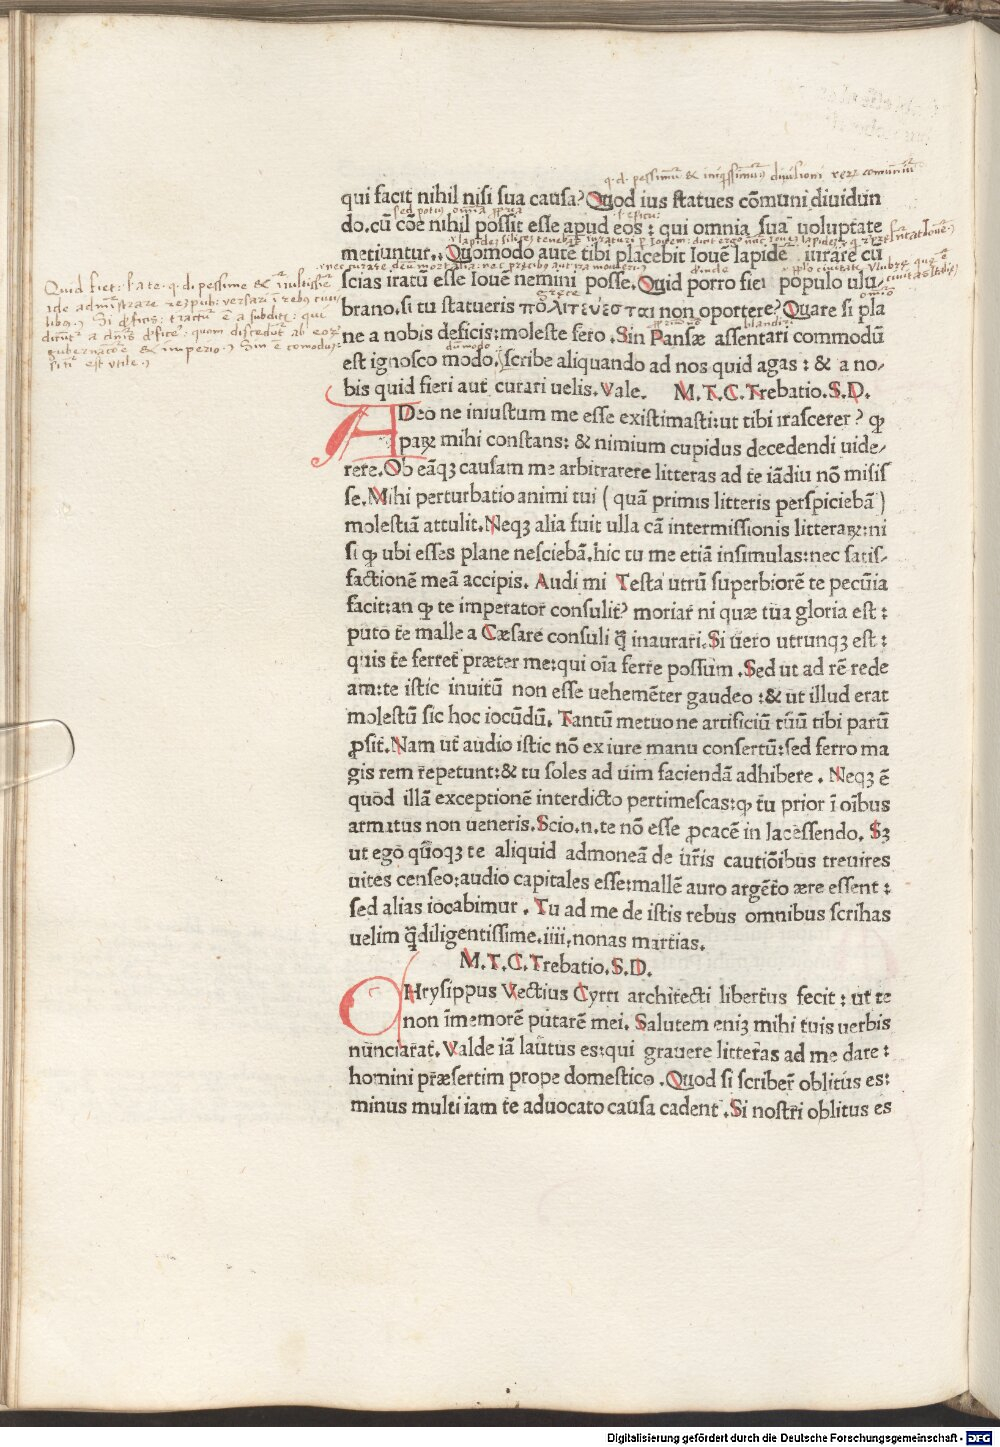 qui facit nihil nisi sua causa? Quod ius statues cōmuni diuidun
do.cū cōe nihil possit esse apud eos : qui omnia sua uoluptate
metiuntur.. Quomodo autē tibi placebit Iouē lapidē iurare cū
scias iratū esse Iouē nemini posse. Quid porro fiet populo ulu-
brano.si tu statueris πολιτευεσται non oportere? Quare si pla
ne a nobis deficis:moleste fero. Sin Pansæ assentari commodū
est ignosco modo. scribe aliquando ad nos quid agas : & a no-
bis quid fieri aut curari uelis. Vale. M.T.C.Trebatio.S.D.
ADeo ne iniustum me esse existimasti:ut tibi irascerer? ꝙ
paꝝ mihi constans: & nimium cupidus decedendi uide-
rere. Ob eāqꝫ causam me arbitrarere litteras ad te iādiu nō misis
se. Mihi perturbatio animi tui ( quā primis litteris perspiciebā )
molestiā attulit. Neqꝫ alia fuit ulla cā intermissionis litteraꝝ:ni
si ꝙ ubi esses plane nesciebā.hic tu me etiā insimulas:nec satis-
factionē meā accipis. Audi mi Testa utrū superbiorē te pecūia
facit:an ꝙ te imperator consulit? moriar ni quæ tua gloria est :
puto te malle a Cæsare consuli q̄ inaurari. Si uero utrunqꝫ est :
quis te ferret præter me:qui oīa ferre possum . Sed ut ad rē rede
am:te istic inuitū non esse uehemēter gaudeo :& ut illud erat
molestū sic hoc iocūdū. Tantū metuo ne artificiū tūū tibi parū
ꝓsit. Nam ut audio istic nō ex iure manu consertū:sed ferro ma
gis rem repetunt:& tu soles ad uim faciendā adhibere . Neqꝫ ē
quod illā exceptionē interdicto pertimescas:ꝙ tu prior ī oībus
armatus non ueneris. Scio.n.te nō esse ꝓcacē in lacessendo. Sꝫ
ut ego quoqꝫ te aliquid admoneā de ūr̄is cautiōibus treuires
uites censeo:audio capitales esse:mallē auro argēto ære essent :
sed alias iocabimur . Tu ad me de istis rebus omnibus scribas
uelim q̄diligentissime.iiii.nonas martias.
M.T.C.Trebatio.S.D.
CHrysippus Vectius Cyrri architecti libertus fecit : ut te
non īmemorē putarē mei. Salutem eniꝫ mihi tuis uerbis
nunciarat. Valde iā lautus es:qui grauere litteras ad me dare :
homini præsertim prope domestico . Quod si scriber oblitus es:
minus multi iam te aduocato causa cadent . Si nostri oblitus es
Digitalisierung gefördert durch die Deutsche Forschungsgemeinschaft - DFG